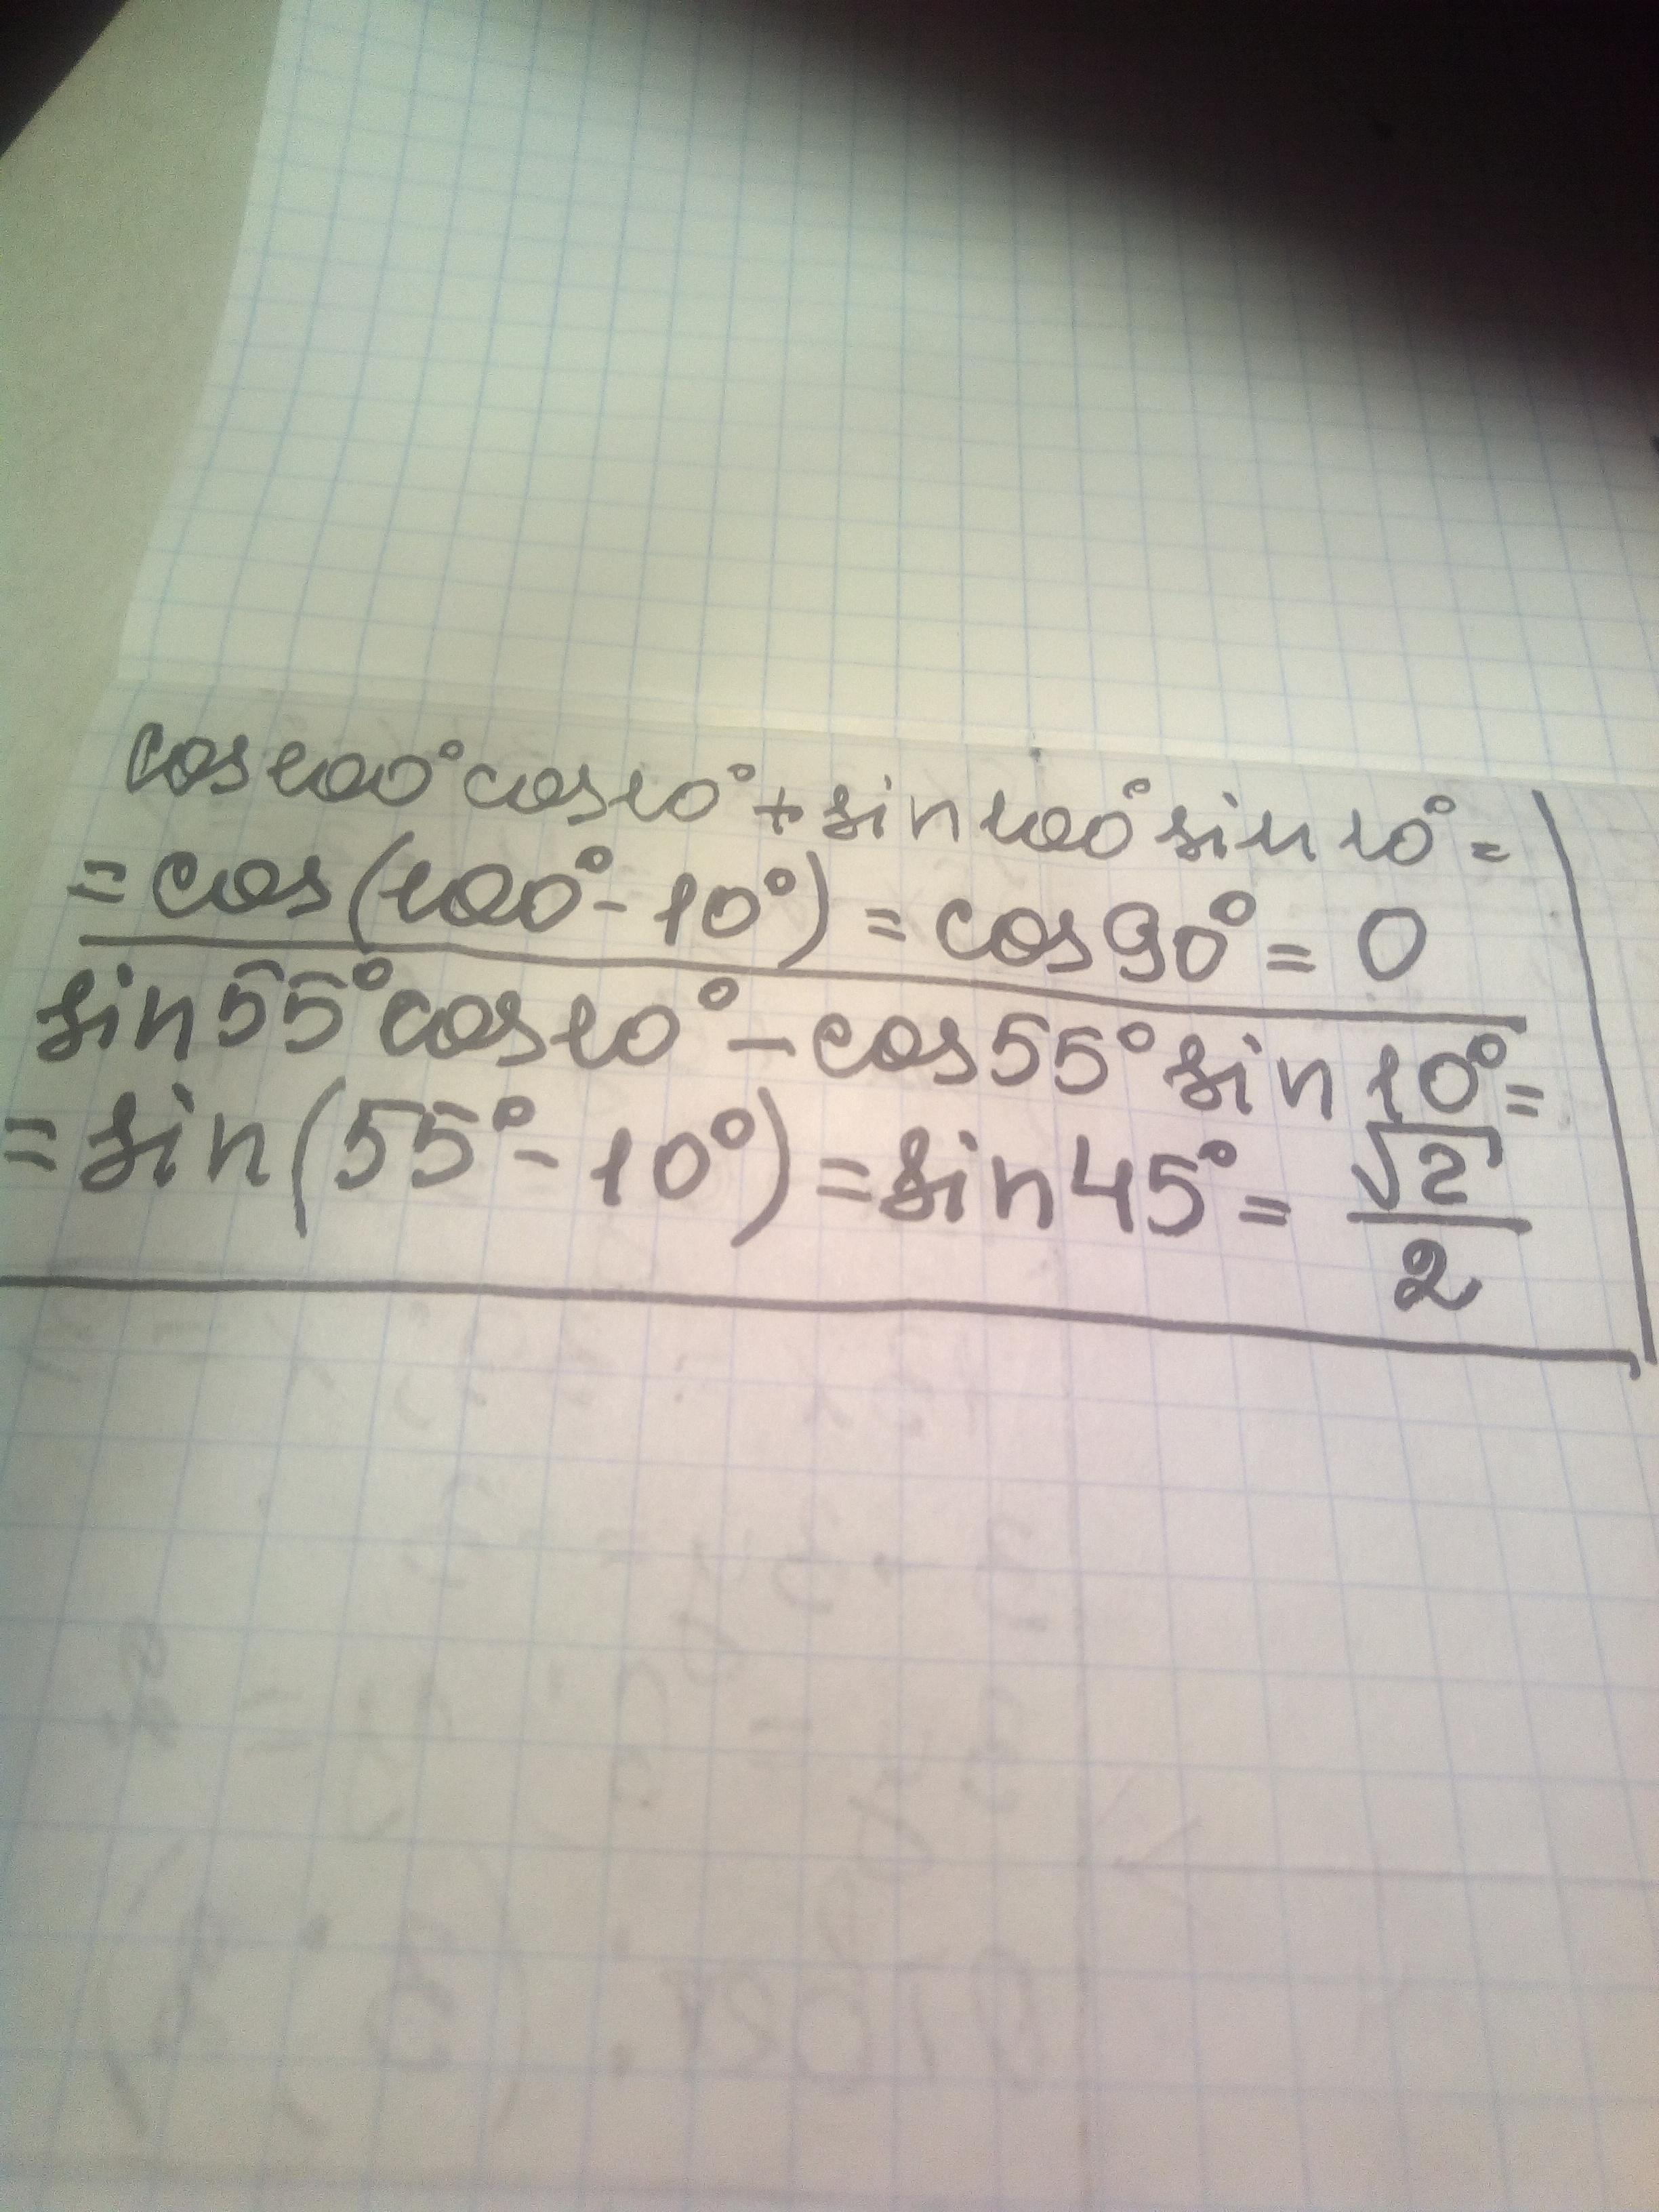 cos100°cos10°+sin100°sin10°=
=cos(100°-10°)=cos90°=0
sin55°cos10°-cos55°sin10°=
=sin(55°-10°)=sin45°=√2/2